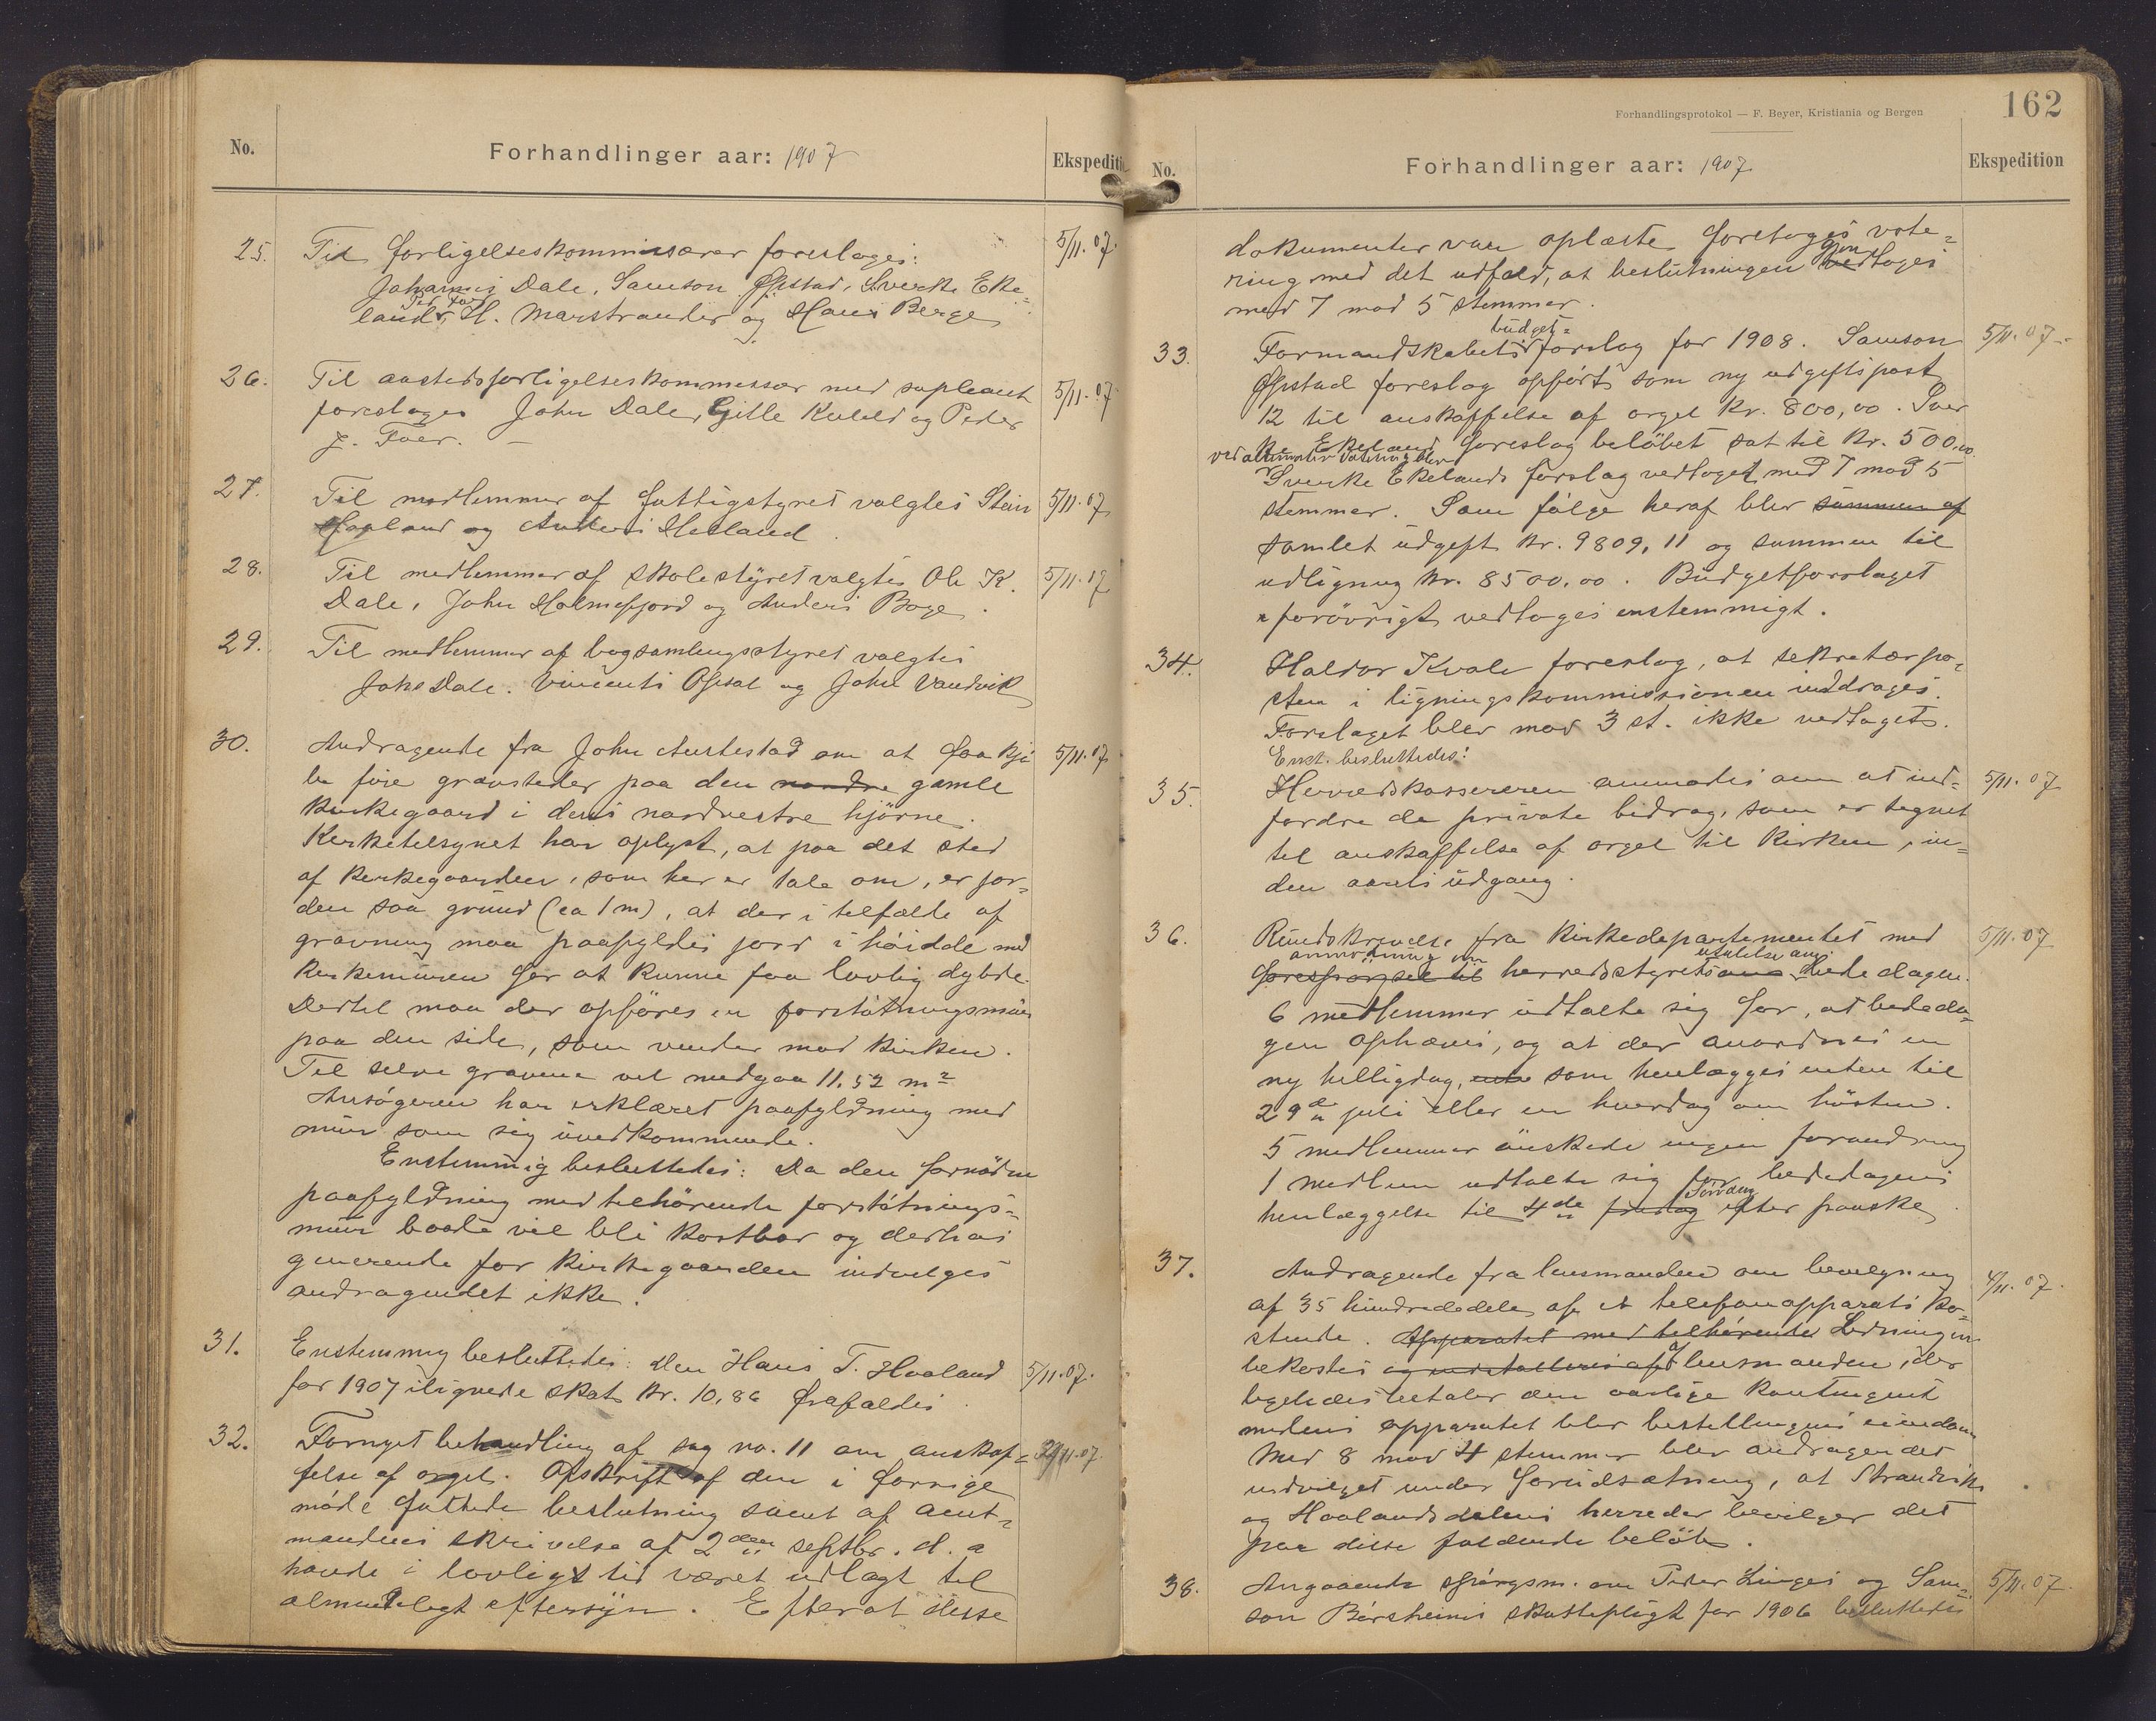 No.
Forhandlinger aar: 1907
Ekspediti
25.
Til forligelseskommissærer foresloges:
5/11.07.
Johannis Dale, Samson Øpstad, Sverke Eke=
land, H. Marstrander og Hans Berge
26.
Til aastedsforligelseskommessær med supleant
5/11.07
foresloges John Dale, Gitle Kvded og Peder
J. Tver.
27.
Til medlemmer af fattigstyret valgtes Stein
5/11.07
Hopland og Anders Helland.
28.
Til medlemmer af skolestyret valgtes Ole K.
5/11.07
Dale, John Holmefjord og Anders Boge.
29.
Til medlemmer af bogsamlingsstyret valgtes
Johs Dale. Vincents Opsal og John Vandvik
30.
Andragende fra John Austestad om at faa kjö
5/11.07
be fire gravsteder paa den nordre gamle
kirkegaard i dens nordvestre hjörne.
Kirketilsynet har oplyst, at paa det sted
af kirkegaarden, som her er tale om, er jor=
den saa grund (ca 1 m), at der i tilfælde af
gravning maa paafyldes jord i höidde med
kirkemuren for at kunne faa lovlig dybde.
Dertil maa der opföres en forstötningsmur
paa den side, som vender mod kirken.
Til selve gravene vil medgaa 11.52 m²
Ansögeren har erklæret paafyldning med
mur som sig uvedkommende.
Enstemmig besluttedes: Da den fornödne
paafyldning med tilhörende forstötnings=
mur baade vil bli kostbar og derhos
generende for kirkegaarden indvilges
andragendet ikke.
31.
Enstemmig besluttedes: Den Hans T. Haaland
5/11.07.
for 1907 ilignede skat kr. 10,86 frafaldes.
32.
Fornyet behandling af sag no. 11 om anskaf=
/11.07.
felse af orgel. Afskrift af den i forrige
möde fattede beslutning samt af amt=
mandens skrivelse af 2den septbr. d. a
havde i lovligt tid været udlagt til
almindeligt eftersyn. Efterat disse
Forhandlingsprotokol — F. Beyer, Kristiania og Bergen
162
No.
Forhandlinger aar: 1907.
Ekspedition
dokumenter var oplæste foretoges vote=
ring med det udfald, at beslutningen vedtoges
med 7 mod 5 stemmer.
budget=
33.
Formandskabets forslag for 1908. Samson
5/11.07
Øpstad foreslog opført som ny udgiftspost
12 til anskaffelse af orgel kr. 800,00. Sver
ke Ekeland foreslog belöbet sat til kr. 500,00.
ved alternativ votering blev
Sverke Ekelands forslag vedtaget med 7 mod 5
stemmer. Som fölge heraf blev summen af
samlet udgift kr. 9809,11 og summen til
udligning kr. 8500,00. Budgetforslaget
forövrigt vedtoges enstemmigt.
34.
Haldor Kvale foreslog, at sekretærpo=
sten i ligningskommissionen inddrages.
Forslaget blev mod 3 st. ikke vedtaget.
Enst. besluttedes:
35.
Herredskassereren anmodes om at ind=
5/11.07
fordre de private bidrag, som er tegnet
til anskaffelse af orgel til kirken, in=
den aarets udgang.
36.
Rundskrivelse fra kirkedepartementet med
5/11.07
anmodning om udtalelse ang.
forespörgsel til herredsstyrets bededagen.
6 medlemmer udtalte sig for, at bededa=
gen ophæves, og at der anordnes en
ny helligdag, som henlægges enten til
29de juli eller en hverdag om hösten.
5 medlemmer önskede ingen forandring
1 medlem udtalte sig for bededagens
Söndag
henlæggelse til 4de fredag efter paaske.
37.
Andragende fra lensmanden om bevilgning
4/11.07.
af 35 hundrededele af et telefonapparats ko=
stende. Apparatet med tilhörende Ledningen
bekostes af lensmanden, der
ligeledes betaler den aarlige kontingent
medens apparatet blir bestillingens eiendom
Med 8 mod 4 stemmer blev andragendet
indvilget under forudsætning, at Strandviks
og Haalandsdalens herreder bevilger det
paa disse faldende belöb.
38.
Angaaende spörgsm. om Peder Linges og Sam=
5/11.07.
son Börsheims skattepligt for 1906 besluttedes